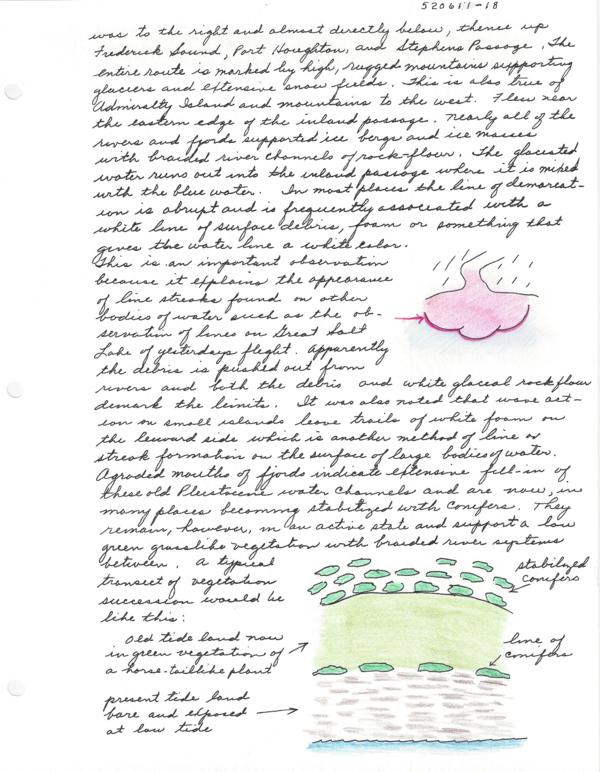 520611-18
was to the right and almost directly below, thence up
Frederick Sound, Port Houghton, and Stephens Passage. The
entire route is marked by high, rugged mountains supporting
glaciers and extensive snow fields. This is also true of
Admiralty Island and mountains to the west. Flew near
the eastern edge of the inland passage. Nearly all of the
rivers and fjords supported ice bergs and ice masses
with braided river channels of rock-flour. The glaciated
water runs out into the inland passage where it is mixed
with the blue water. In most places the line of demarcat-
ion is abrupt and is frequently associated with a
white line of surface debris, foam or something that
gives the water line a white color.
This is an important observation
because it explains the appearance
of line streaks found on other
bodies of water such as the ob-
servation of lines on Great Salt
Lake of yesterdays flight. Apparently
the debris is pushed out from
rivers and both the debris and white glacial rock flour
demark the limits. It was also noted that wave act-
ion on small islands leave trails of white foam on
the leeward side which is another method of line or
streak formation on the surface of large bodies of water.
Agraded mouths of fjords indicate extensive fill-in of
these old Pleistocene water channels and are now, in
many places becoming stabilized with conifers. They
remain, however, in an active state and support a low
green grasslike vegetation with braided river systems
between. A typical
transect of vegetation
succession would be
like this:
stabilized
conifers
Old tide land now
in green vegetation of
a horse-taillike plant
line of
conifers
present tide land
bare and exposed
at low tide